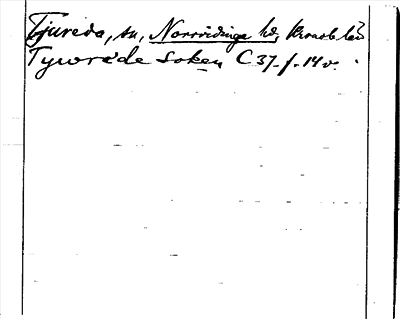 Tjureda, sn, Norrvidinge hd, Kronob. län
Tywrede Soken C 37. f. 14 v.